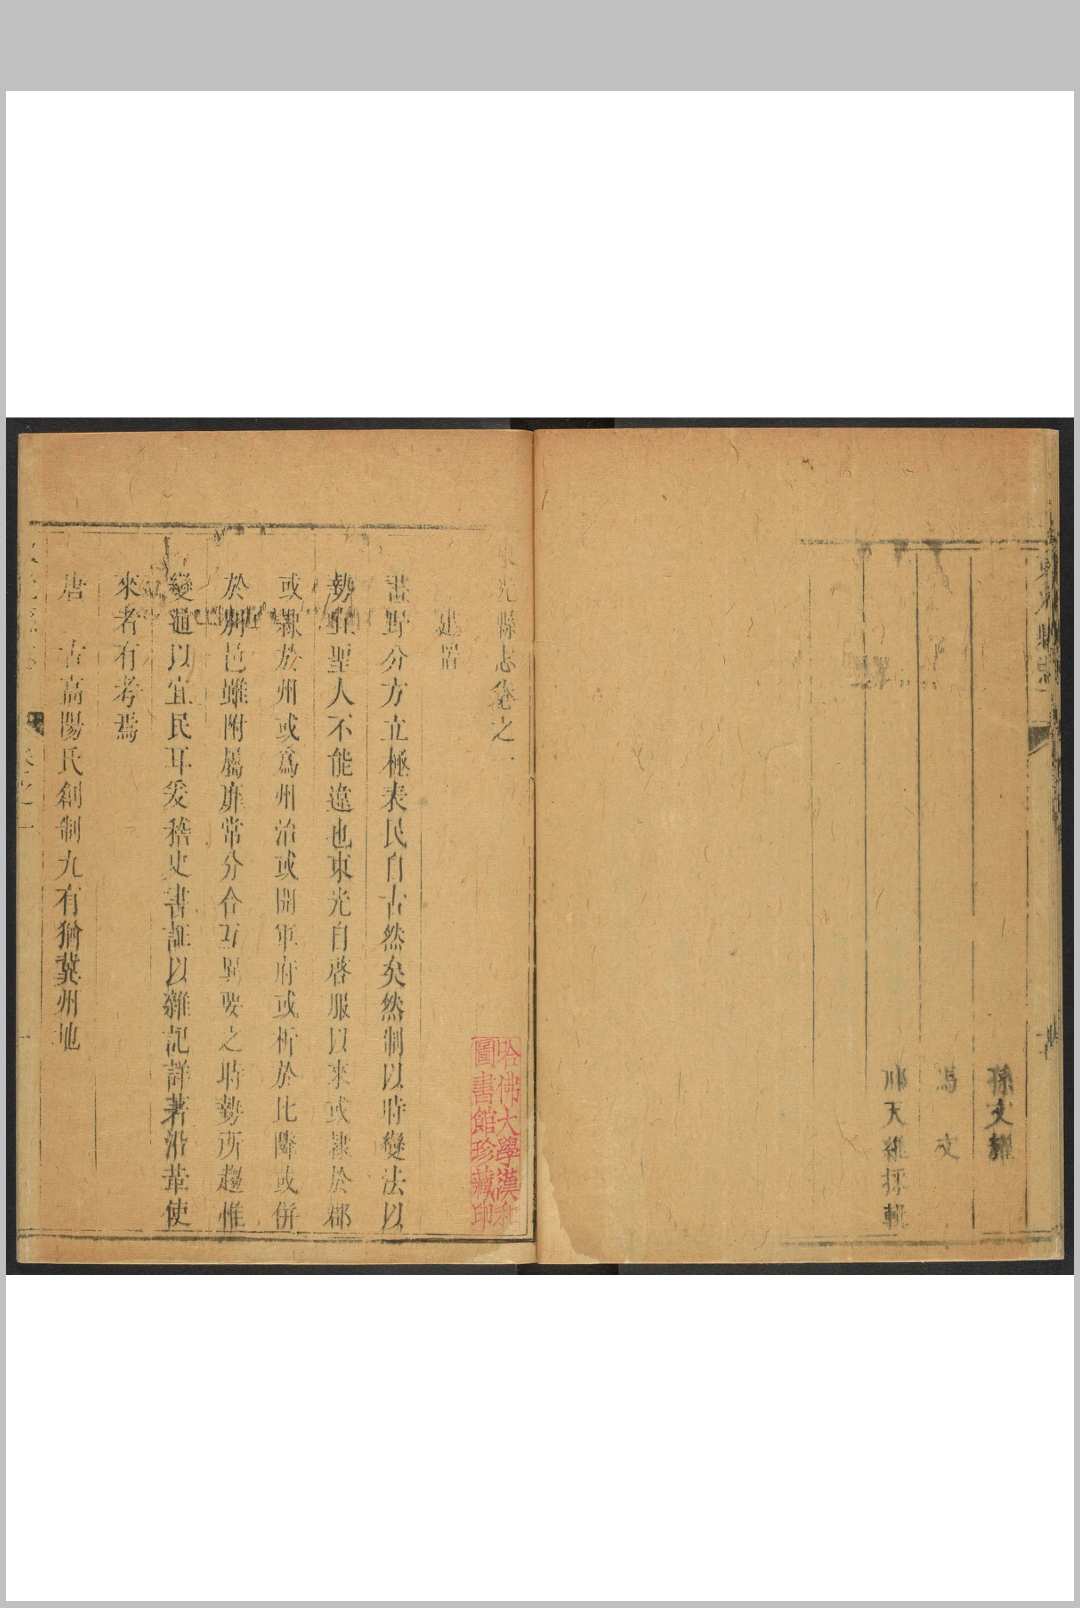 東光縣志
孫文耀
馮文
天維採輯
東光縣志卷之一
建置
畫野分方立極表民自古然矣然制以時變法以
勢異聖人不能違也東光自啓服以來或隸於郡
或隸於州或爲州治或開軍府或析於比隣或併
於別邑雖附屬靡常分合互異要之時勢所趨惟
變通以宜民耳爰稽史書証以雜記詳著沿革使
來者有考焉
唐 古高陽氏創制九有猶冀州地
卷之一
哈佛大學漢和
圖書館珍藏印